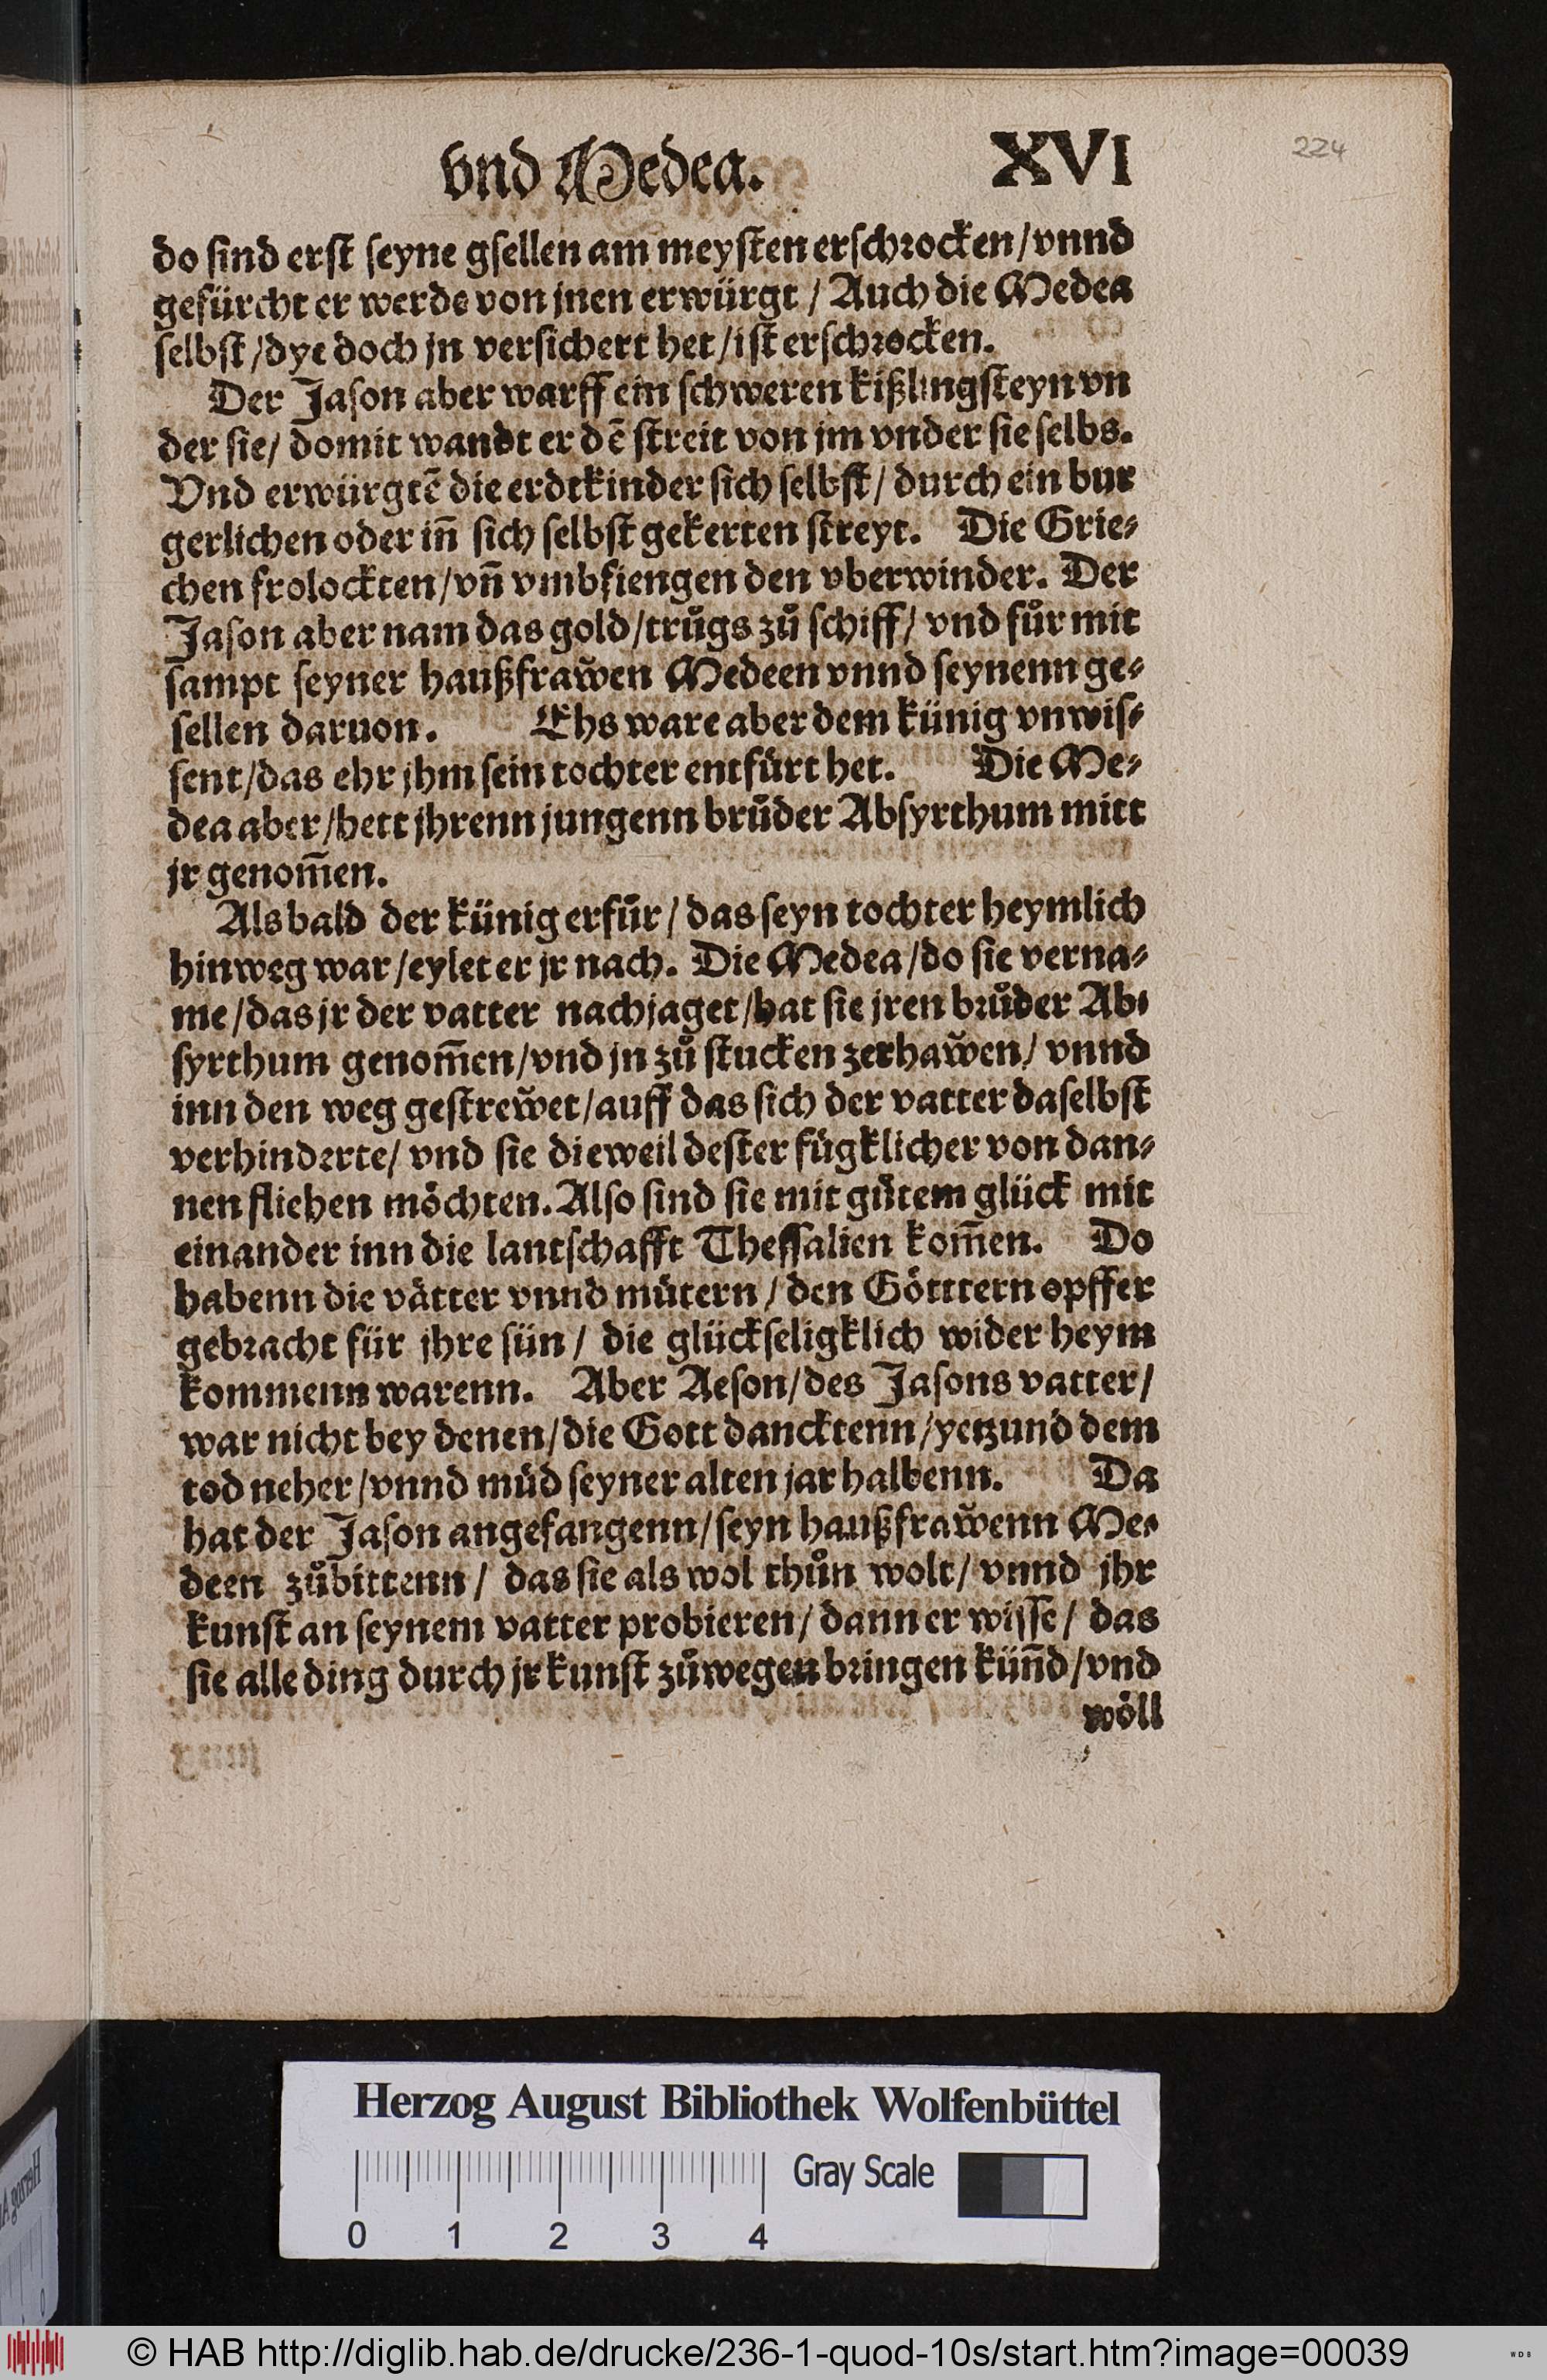 vnd Medea. XVI
224
do ſind erſt ſeyne gſellen am meyſten erſchꝛocken/vnnd
gefürcht er werde von jnen erwürgt / Auch die Medea
ſelbſt/dye doch jn verſichert het/iſt erſchꝛocken.
Der Jaſon aber warff ein ſchweren kißlingſteyn vn
der ſie/ domit wandt er dẽ ſtreit von jm vnder ſie ſelbs.
Vnd erwürgtẽ die erdtkinder ſich ſelbſt/ durch ein bur
gerlichen oder iñ ſich ſelbſt gekerten ſtreyt. Die Grie⸗
chen frolockten/vñ vmbfiengen den vberwinder. Der
Jaſon aber nam das gold/trůgs zů ſchiff/ vnd fůr mit
ſampt ſeyner haußfraw̆en Medeen vnnd ſeynenn ge⸗
ſellen daruon. Ehs ware aber dem künig vnwiſ⸗
ſent/das ehr jhm ſein tochter entfürt het. Die Me⸗
dea aber/hett jhrenn jungenn brůder Abſyrthum mitt
jr genom̃en.
Als bald der künig erfůr/ das ſeyn tochter heymlich
hinweg war/eylet er jr nach. Die Medea/do ſie verna⸗
me/das jr der vatter nachjaget/hat ſie jren bꝛůder Ab⸗
ſyrthum genom̃en/vnd jn zů ſtucken zerhaw̆en/ vnnd
inn den weg geſtrew̆et/auff das ſich der vatter daſelbſt
verhinderte/ vnd ſie dieweil deſter fügklicher von dan⸗
nen fliehen möchten. Alſo ſind ſie mit gůtem glück mit
einander inn die lantſchafft Theſſalien kom̃en. Do
habenn die vätter vnnd mütern / den Götttern opffer
gebꝛacht für jhre ſün / die glückſeligklich wider heym
kommenn warenn. Aber Aeſon/des Jaſons vatter/
war nicht bey denen/die Gott dancktenn/yetzund dem
tod neher/vnnd müd ſeyner alten jar halbenn. Da
hat der Jaſon angefangenn/ſeyn haußfraw̆enn Me⸗
deen zůbittenn / das ſie als wol thůn wolt/ vnnd jhr
kunſt an ſeynem vatter probieren/ dann er wiſſe/ das
ſie alle ding durch jr kunſt zůwegen bꝛingen küñd/vnd
wöll
Herzog August Bibliothek Wolfenbüttel
Gray Scale
0 1 2 3 4
© HAB http://diglib.hab.de/drucke/236-1-quod-10s/start.htm?image=00039
WDB